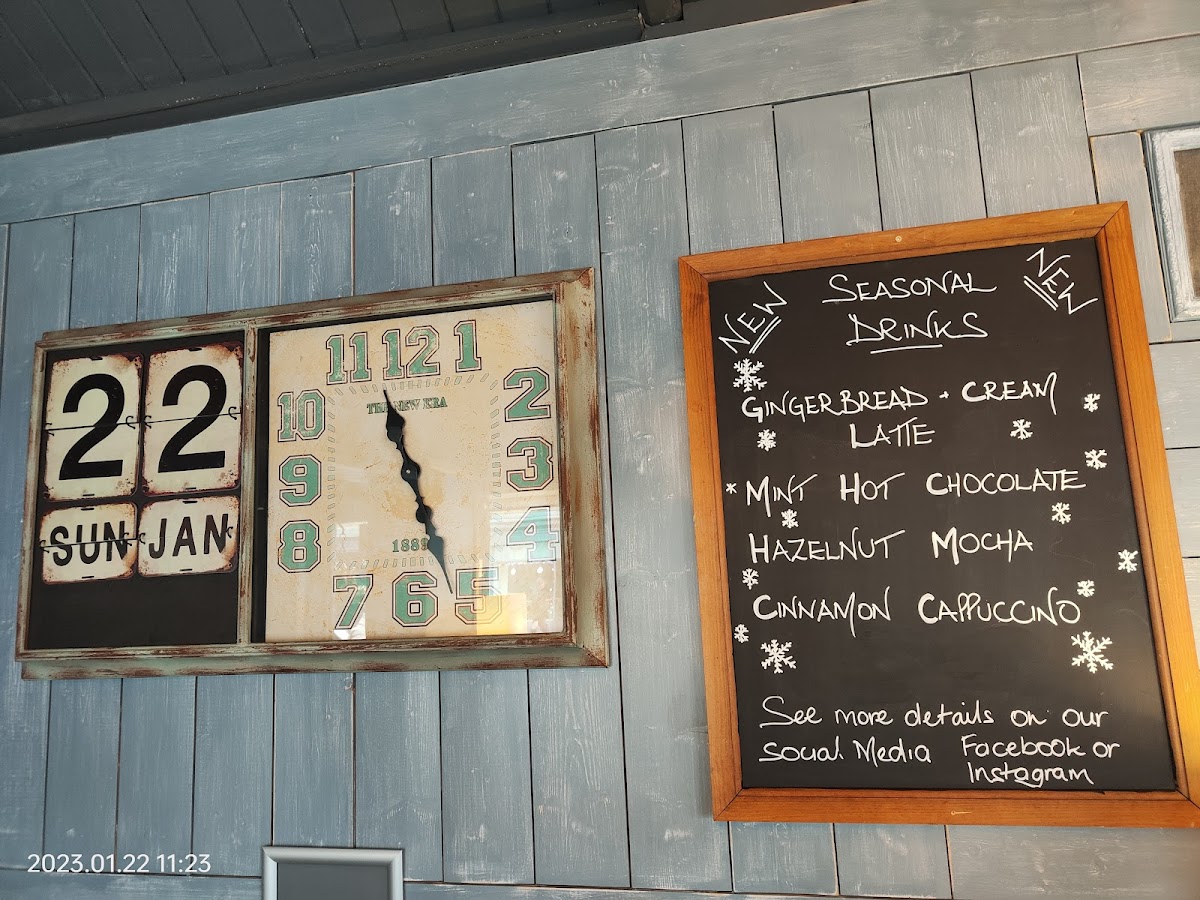 22
SUN JAN
11 12 1
10 2
THE NEW ERA
9 3
8 4
1889
7 6 5
NEW
NEW
SEASONAL
DRINKS
GINGERBREAD + CREAM
LATTE
MINT HOT CHOCOLATE
HAZELNUT MOCHA
CINNAMON CAPPUCCINO
See more details on our
Social Media Facebook or
Instagram
2023.01.22 11:23